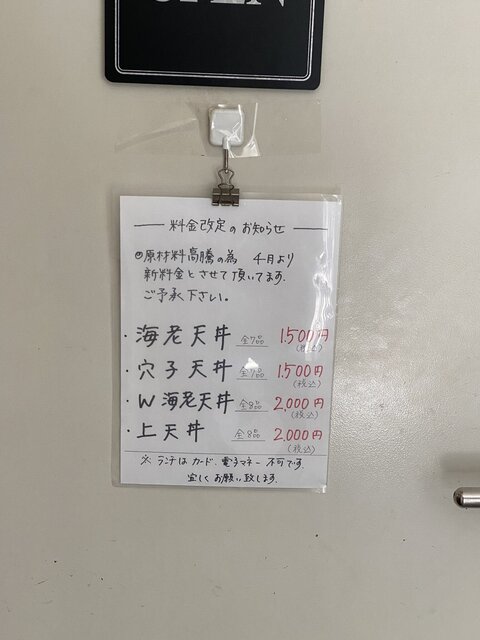 OPEN
料金改定のお知らせ
◎原材料高騰の為 4月より
新料金とさせて頂いてます。
ご予承下さい。
・海老天丼 全7品 1.500円
(税込)
・穴子天丼 全7品 1.500円
(税込)
・W海老天丼 全8品 2,000円
(税込)
・上天丼 全8品 2,000円
(税込)
※ ランチはカード、電子マネー 不可です。
宜しくお願い致します。